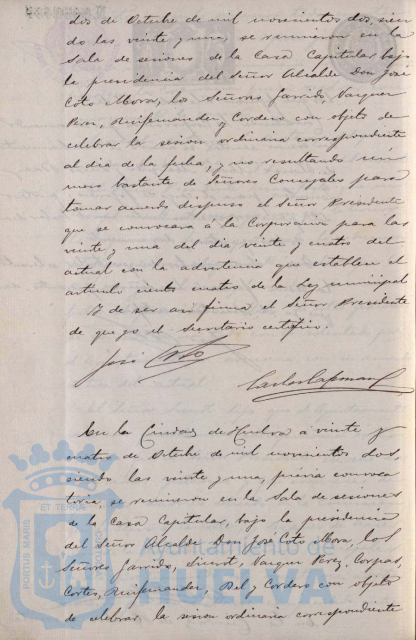 dos de Octubre de mil novecientos dos, sien
do las veinte y una, se reunieron en la
Sala de sesiones de la Casa Capitular bajo
la presidencia del Señor Alcalde Don José
Coto Mora, los Señores Garrido, Vazquez
Perez, Ruifernandez y Cordero con objeto de
celebrar la sesion ordinaria correspondiente
al dia de la fecha, y no resultando nú
mero bastante de Señores Concejales para
tomar acuerdo dispuso el Señor Presidente
que se convocara á la Corporacion para las
veinte y una del dia veinte y cuatro del
actual con la advertencia que establece el
articulo ciento cuatro de la Ley municipal
Y de ser asi firma el Señor Presidente
de que yo el Secretario certifico.
José Coto
En la Ciudad de Huelva á veinte y
cuatro de Octubre de mil novecientos dos,
siendo las veinte y una, prévia convoca
toria, se reunieron en la Sala de sesiones
de la Casa Capitular, bajo la presidencia
del Señor Alcalde Don José Coto Mora, los
Señores Garrido, Vazquez Perez,
Cortés, Ruifernandez, y Cordero con objeto
de celebrar la sesion ordinaria correspondiente
PORTUS MARIS
ET TERRAE
Ayuntamiento de
HUELVA